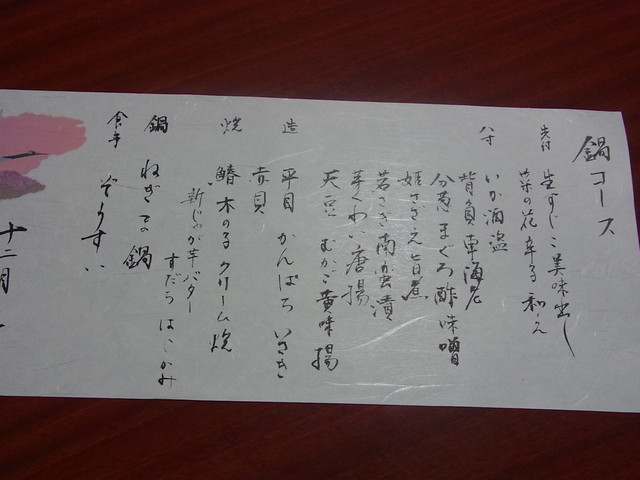 鍋コース
先付 生すじこ美味出し
菜の花辛子和え
八寸 いか酒盗
背負車海老
分葱まぐろ酢味噌
姫さざえ旨煮
若さき南蛮漬
芽くわい唐揚
天豆 むかご黄味揚
造 平目 かんぱち いさき
赤貝
焼 鰆木の子クリーム焼
新じゃが芋バター
すだち はじかみ
鍋 ねぎての鍋
食事 ぞうすい
十二月